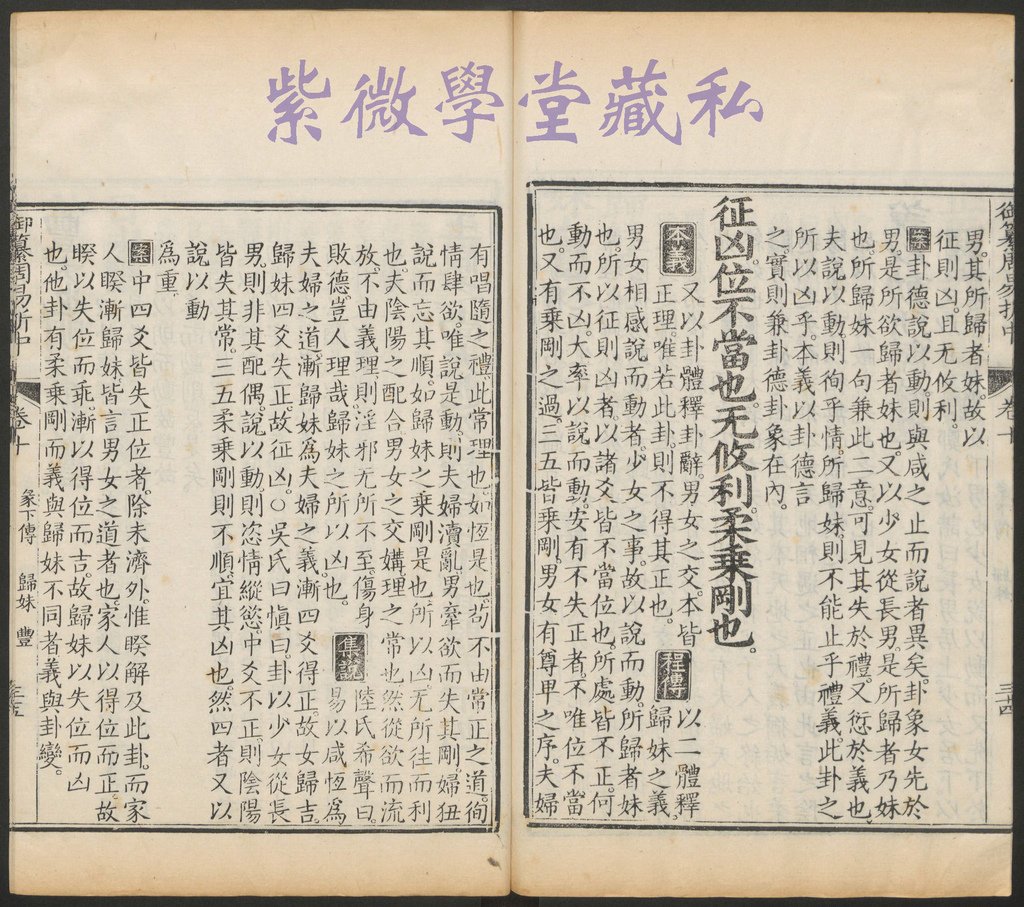 紫微學堂藏私
御纂周易折中
卷十
三十四
男其所歸者妹故以
征則凶且无攸利
案卦德說以動則與咸之止而說者異矣卦象女先於
男是所欲歸者妹也又以少女從長男是所歸者乃妹
也所歸妹一句兼此二意可見其失於禮又愆於義也
夫說以動則徇乎情所歸妹則不能止乎禮義此卦之
所以凶乎本義以卦德言
之實則兼卦德卦象在內
征凶位不當也无攸利柔乘剛也
本義又以卦體釋卦辭男女之交本皆
正理唯若此卦則不得其正也
程傳以二體釋
歸妹之義
男女相感說而動者少女之事故以說而動所歸者妹
也所以征則凶者以諸爻皆不當位也所處皆不正何
動而不凶大率以說而動安有不失正者不唯位不當
也又有乘剛之過三五皆乘剛男女有尊卑之序夫婦
有唱隨之禮此常理也如恆是也苟不由常正之道徇
情肆欲唯說是動則夫婦瀆亂男牽欲而失其剛婦狃
說而忘其順如歸妹之乘剛是也所以凶无所往而利
也夫陰陽之配合男女之交媾理之常也然從欲而流
放不由義理則淫邪无所不至傷身
敗德豈人理哉歸妹之所以凶也
集說陸氏希聲曰
易以咸恆爲
夫婦之道漸歸妹爲夫婦之義漸四爻得正故女歸吉
歸妹四爻失正故征凶○吳氏曰愼曰卦以少女從長
男則非其配偶說以動則恣情縱慾中爻不正則陰陽
皆失其常三五柔乘剛則不順宜其凶也然四者又以
說以動
爲重
案中四爻皆失正位者除未濟外惟睽解及此卦而家
人睽漸歸妹皆言男女之道者也家人以得位而正故
睽以失位而乖漸以得位而吉故歸妹以失位而凶
也他卦有柔乘剛而義與歸妹不同者義與卦變
御纂周易折中
卷十
彖下傳
歸妹
豐
三十五